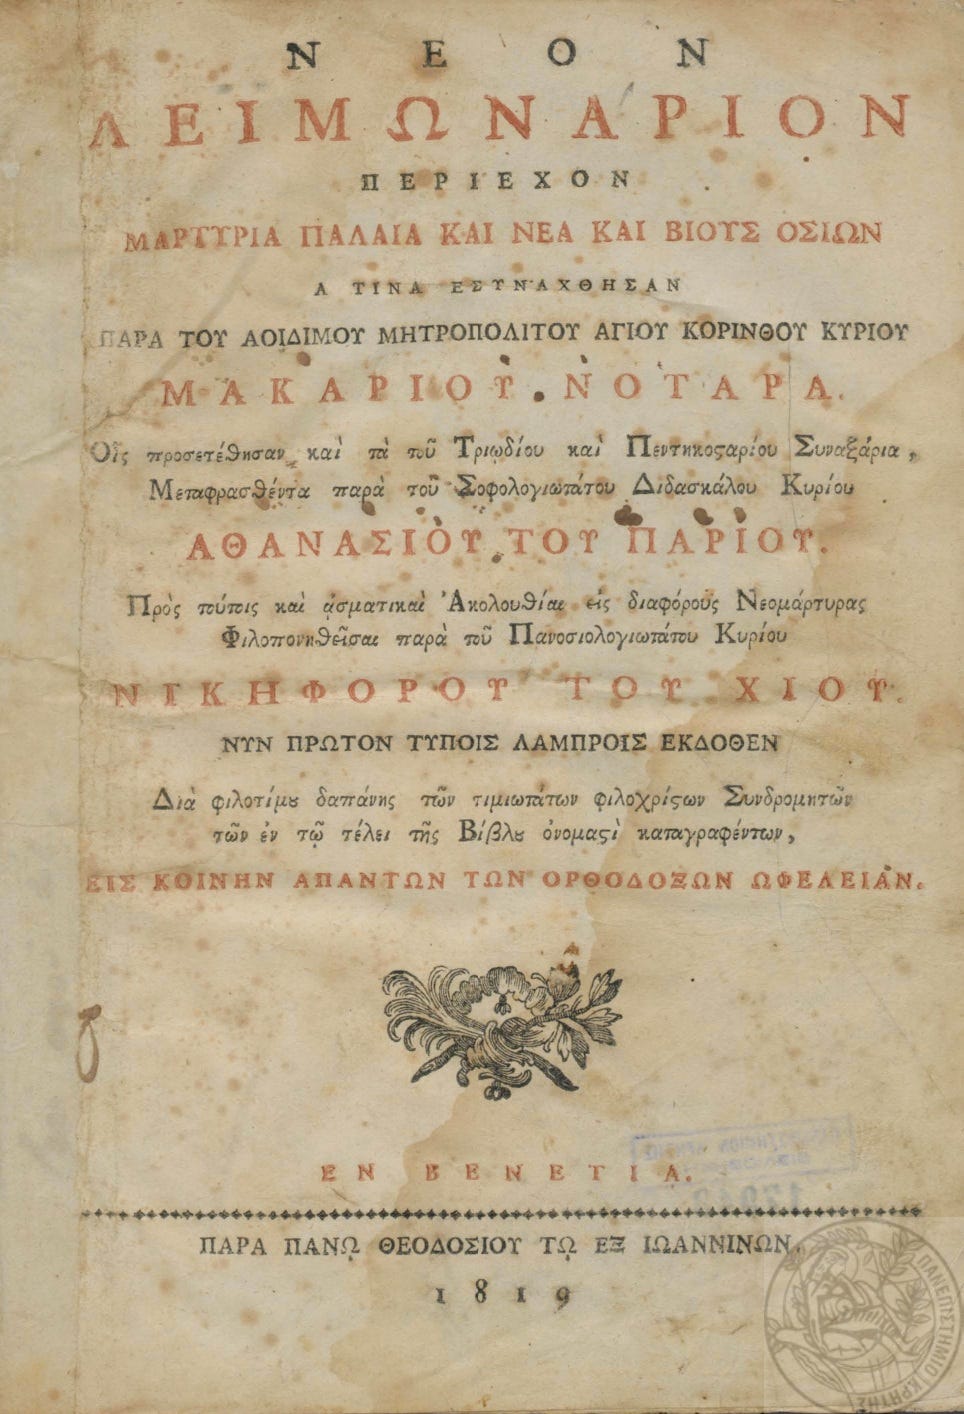 ΝΕΟΝ
ΛΕΙΜΩΝΑΡΙΟΝ
ΠΕΡΙΕΧΟΝ
ΜΑΡΤΥΡΙΑ ΠΑΛΑΙΑ ΚΑΙ ΝΕΑ ΚΑΙ ΒΙΟΥΣ ΟΣΙΩΝ
Α ΤΙΝΑ ΕΣΥΝΑΧΘΗΣΑΝ
ΠΑΡΑ ΤΟΥ ΑΟΙΔΙΜΟΥ ΜΗΤΡΟΠΟΛΙΤΟΥ ΑΓΙΟΥ ΚΟΡΙΝΘΟΥ ΚΥΡΙΟΥ
ΜΑΚΑΡΙΟΥ ΝΟΤΑΡΑ.
Οἷς προσετέθησαν καὶ τὰ τοῦ Τριῳδίου καὶ Πεντηκοϛαρίου Συναξάρια,
Μεταφρασθέντα παρὰ τοῦ Σοφολογιωτάτου Διδασκάλου Κυρίου
ΑΘΑΝΑΣΙΟΥ ΤΟΥ ΠΑΡΙΟΥ.
Πρὸς τούτοις καὶ ᾀσματικαὶ Ἀκολουθίαι εἰς διαφόρους Νεομάρτυρας
Φιλοπονηθεῖσαι παρὰ τοῦ Πανοσιολογιωτάτου Κυρίου
ΝΙΚΗΦΟΡΟΥ ΤΟΥ ΧΙΟΥ.
ΝΥΝ ΠΡΩΤΟΝ ΤΥΠΟΙΣ ΛΑΜΠΡΟΙΣ ΕΚΔΟΘΕΝ
Διὰ φιλοτίμȣ δαπάνης τῶν τιμιωτάτων φιλοχρίϛων Συνδρομητῶν
τῶν ἐν τῷ τέλει τῆς Βίβλȣ ὀνομαϛὶ καταγραφέντων,
ΕΙΣ ΚΟΙΝΗΝ ΑΠΑΝΤΩΝ ΤΩΝ ΟΡΘΟΔΟΞΩΝ ΩΦΕΛΕΙΑΝ.
ΕΝ ΒΕΝΕΤΙΑ.
ΠΑΡΑ ΠΑΝῼ ΘΕΟΔΟΣΙΟΥ Τῼ ΕΞ ΙΩΑΝΝΙΝΩΝ.
1819
ΠΑΝΕΠΙΣΤΗΜΙΟ ΚΡΗΤΗΣ